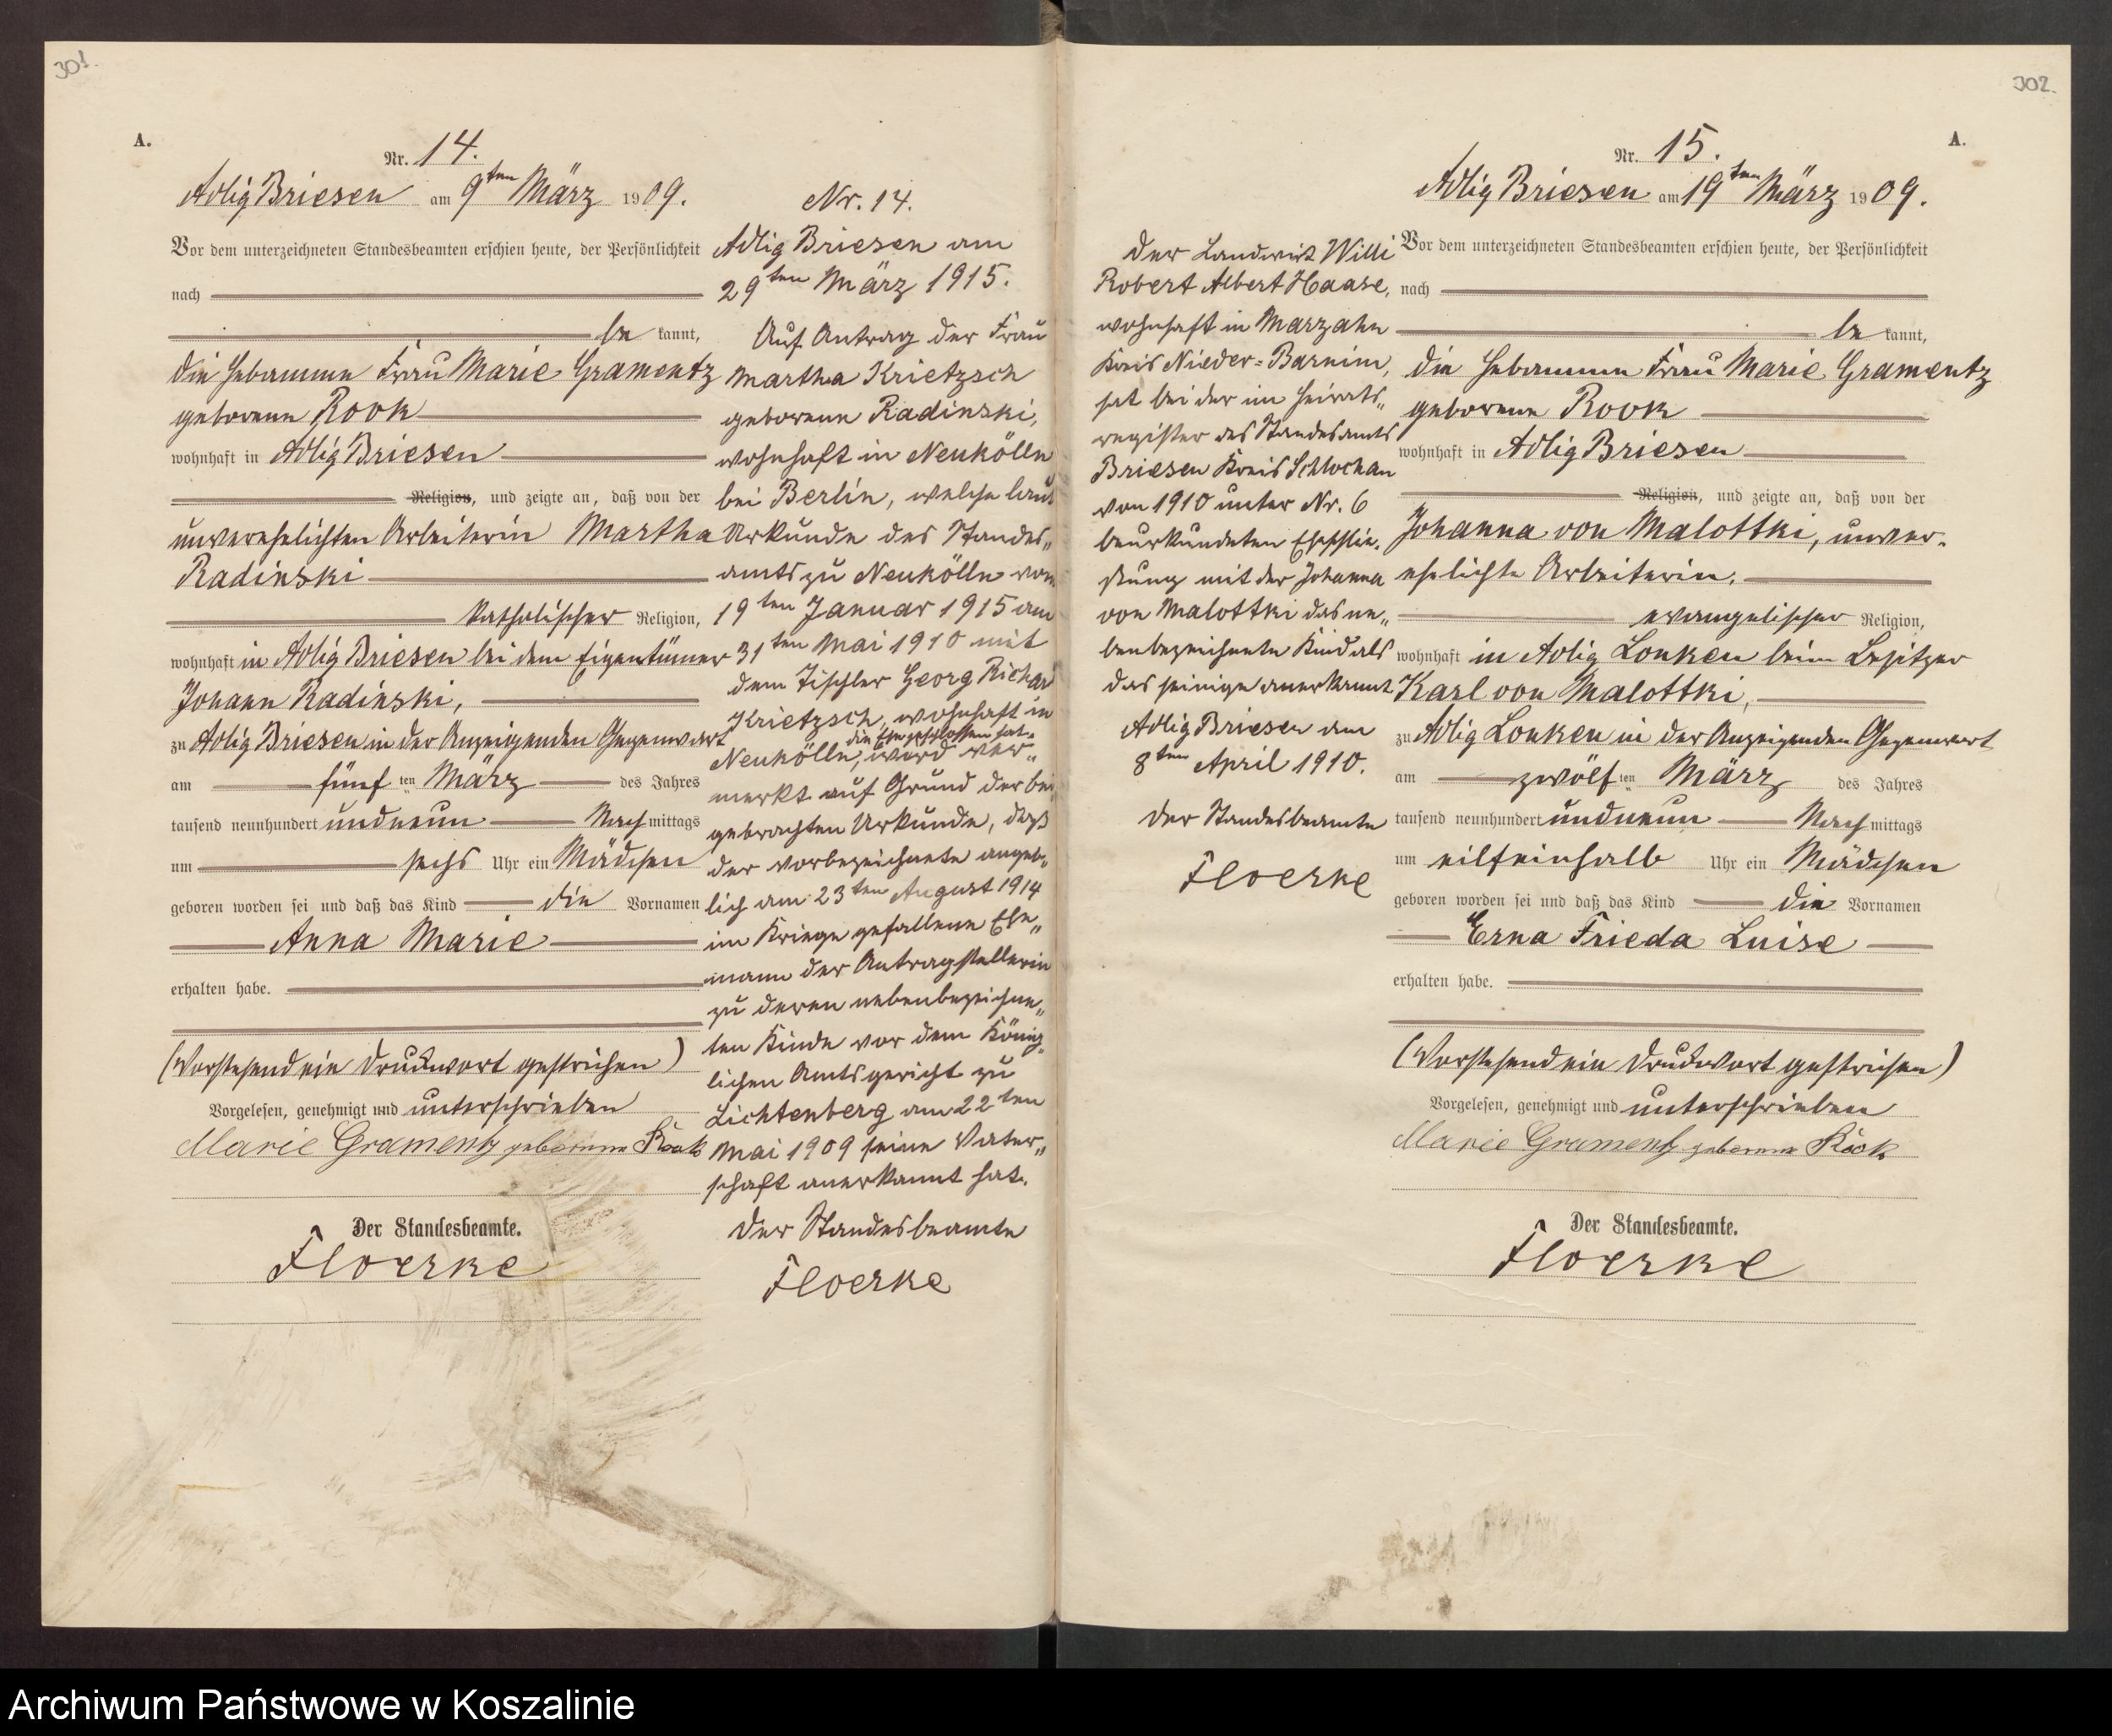 301.
A.
Nr. 14.
Adlig Briesen am 9ten März 1909.
Vor dem unterzeichneten Standesbeamten erschien heute, der Persönlichkeit
nach
be kannt,
die Hebamme Frau Marie Gramentz
geborene Rook
wohnhaft in Adlig Briesen
Religion, und zeigte an, daß von der
unverehelichten Arbeiterin Martha
Radinski
katholischer Religion,
wohnhaft in Adlig Briesen bei dem Eigentümer
Johann Radinski,
zu Adlig Briesen in der Anzeigenden Gegenwart
am fünf ten März des Jahres
tausend neunhundert und neun Nach mittags
um sechs Uhr ein Mädchen
geboren worden sei und daß das Kind die Vornamen
Anna Marie
erhalten habe.
(Vorstehend ein Druckwort gestrichen)
Vorgelesen, genehmigt und unterschrieben
Marie Gramentz geborene Rook
Der Standesbeamte.
Floerke
Nr. 14.
Adlig Briesen am
29ten März 1915.
Auf Antrag der Frau
Martha Krietzsch
geborene Radinski,
wohnhaft in Neukölln
bei Berlin, welche laut
Urkunde des Standes„
amts zu Neukölln vom
19ten Januar 1915 am
31ten Mai 1910 mit
dem Tischler Georg Richard
Krietzsch, wohnhaft in
die Ehe geschlossen hat,
Neukölln, ward ver„
merkt auf Grund der bei
gebrachten Urkunde, daß
der vorbezeichnete angeb„
lich am 23ten August 1914
im Kriege gefallene Ehe„
mann der Antragstellerin
zu deren nebenbezeichne„
ten Kinde vor dem König„
lichen Amtsgericht zu
Lichtenberg am 22ten
Mai 1909 seine Vater„
schaft anerkannt hat.
Der Standesbeamte
Floerke
302.
A.
Nr. 15.
Adlig Briesen am 19ten März 1909.
Vor dem unterzeichneten Standesbeamten erschien heute, der Persönlichkeit
nach
be kannt,
die Hebamme Frau Marie Gramentz
geborene Rook
wohnhaft in Adlig Briesen
Religion, und zeigte an, daß von der
Johanna von Malottki, unver„
ehelichte Arbeiterin,
evangelischer Religion,
wohnhaft in Adlig Lonken beim Besitzer
Karl von Malottki,
zu Adlig Lonken in der Anzeigenden Gegenwart
am zwölf ten März des Jahres
tausend neunhundert und neun Nach mittags
um eilfeinhalb Uhr ein Mädchen
geboren worden sei und daß das Kind die Vornamen
Erna Frieda Luise
erhalten habe.
(Vorstehend ein Druckwort gestrichen)
Vorgelesen, genehmigt und unterschrieben
Marie Gramentz geborene Rook
Der Standesbeamte.
Floerke
Der Landwirt Willi
Robert Albert Haase,
wohnhaft in Marzahn
Kreis Nieder=Barnim,
hat bei der im Heirats„
register des Standesamts
Briesen Kreis Schlochau
von 1910 unter Nr. 6
beurkundeten Eheschlie„
ßung mit der Johanna
von Malottki das ne„
benbezeichnete Kind als
das seinige anerkannt
Adlig Briesen am
8ten April 1910.
Der Standesbeamte
Floerke
Archiwum Państwowe w Koszalinie